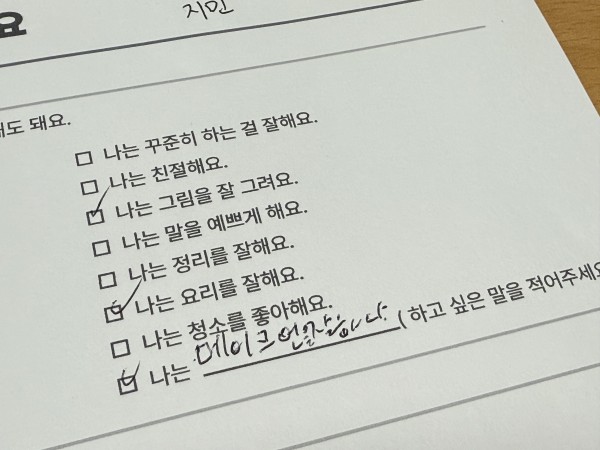 요
지민
해도 돼요.
나는 꾸준히 하는 걸 잘해요.
나는 친절해요.
나는 그림을 잘 그려요.
나는 말을 예쁘게 해요.
나는 정리를 잘해요.
나는 요리를 잘해요.
나는 청소를 좋아해요.
나는 메이크업을 잘합니다 (하고 싶은 말을 적어주세요